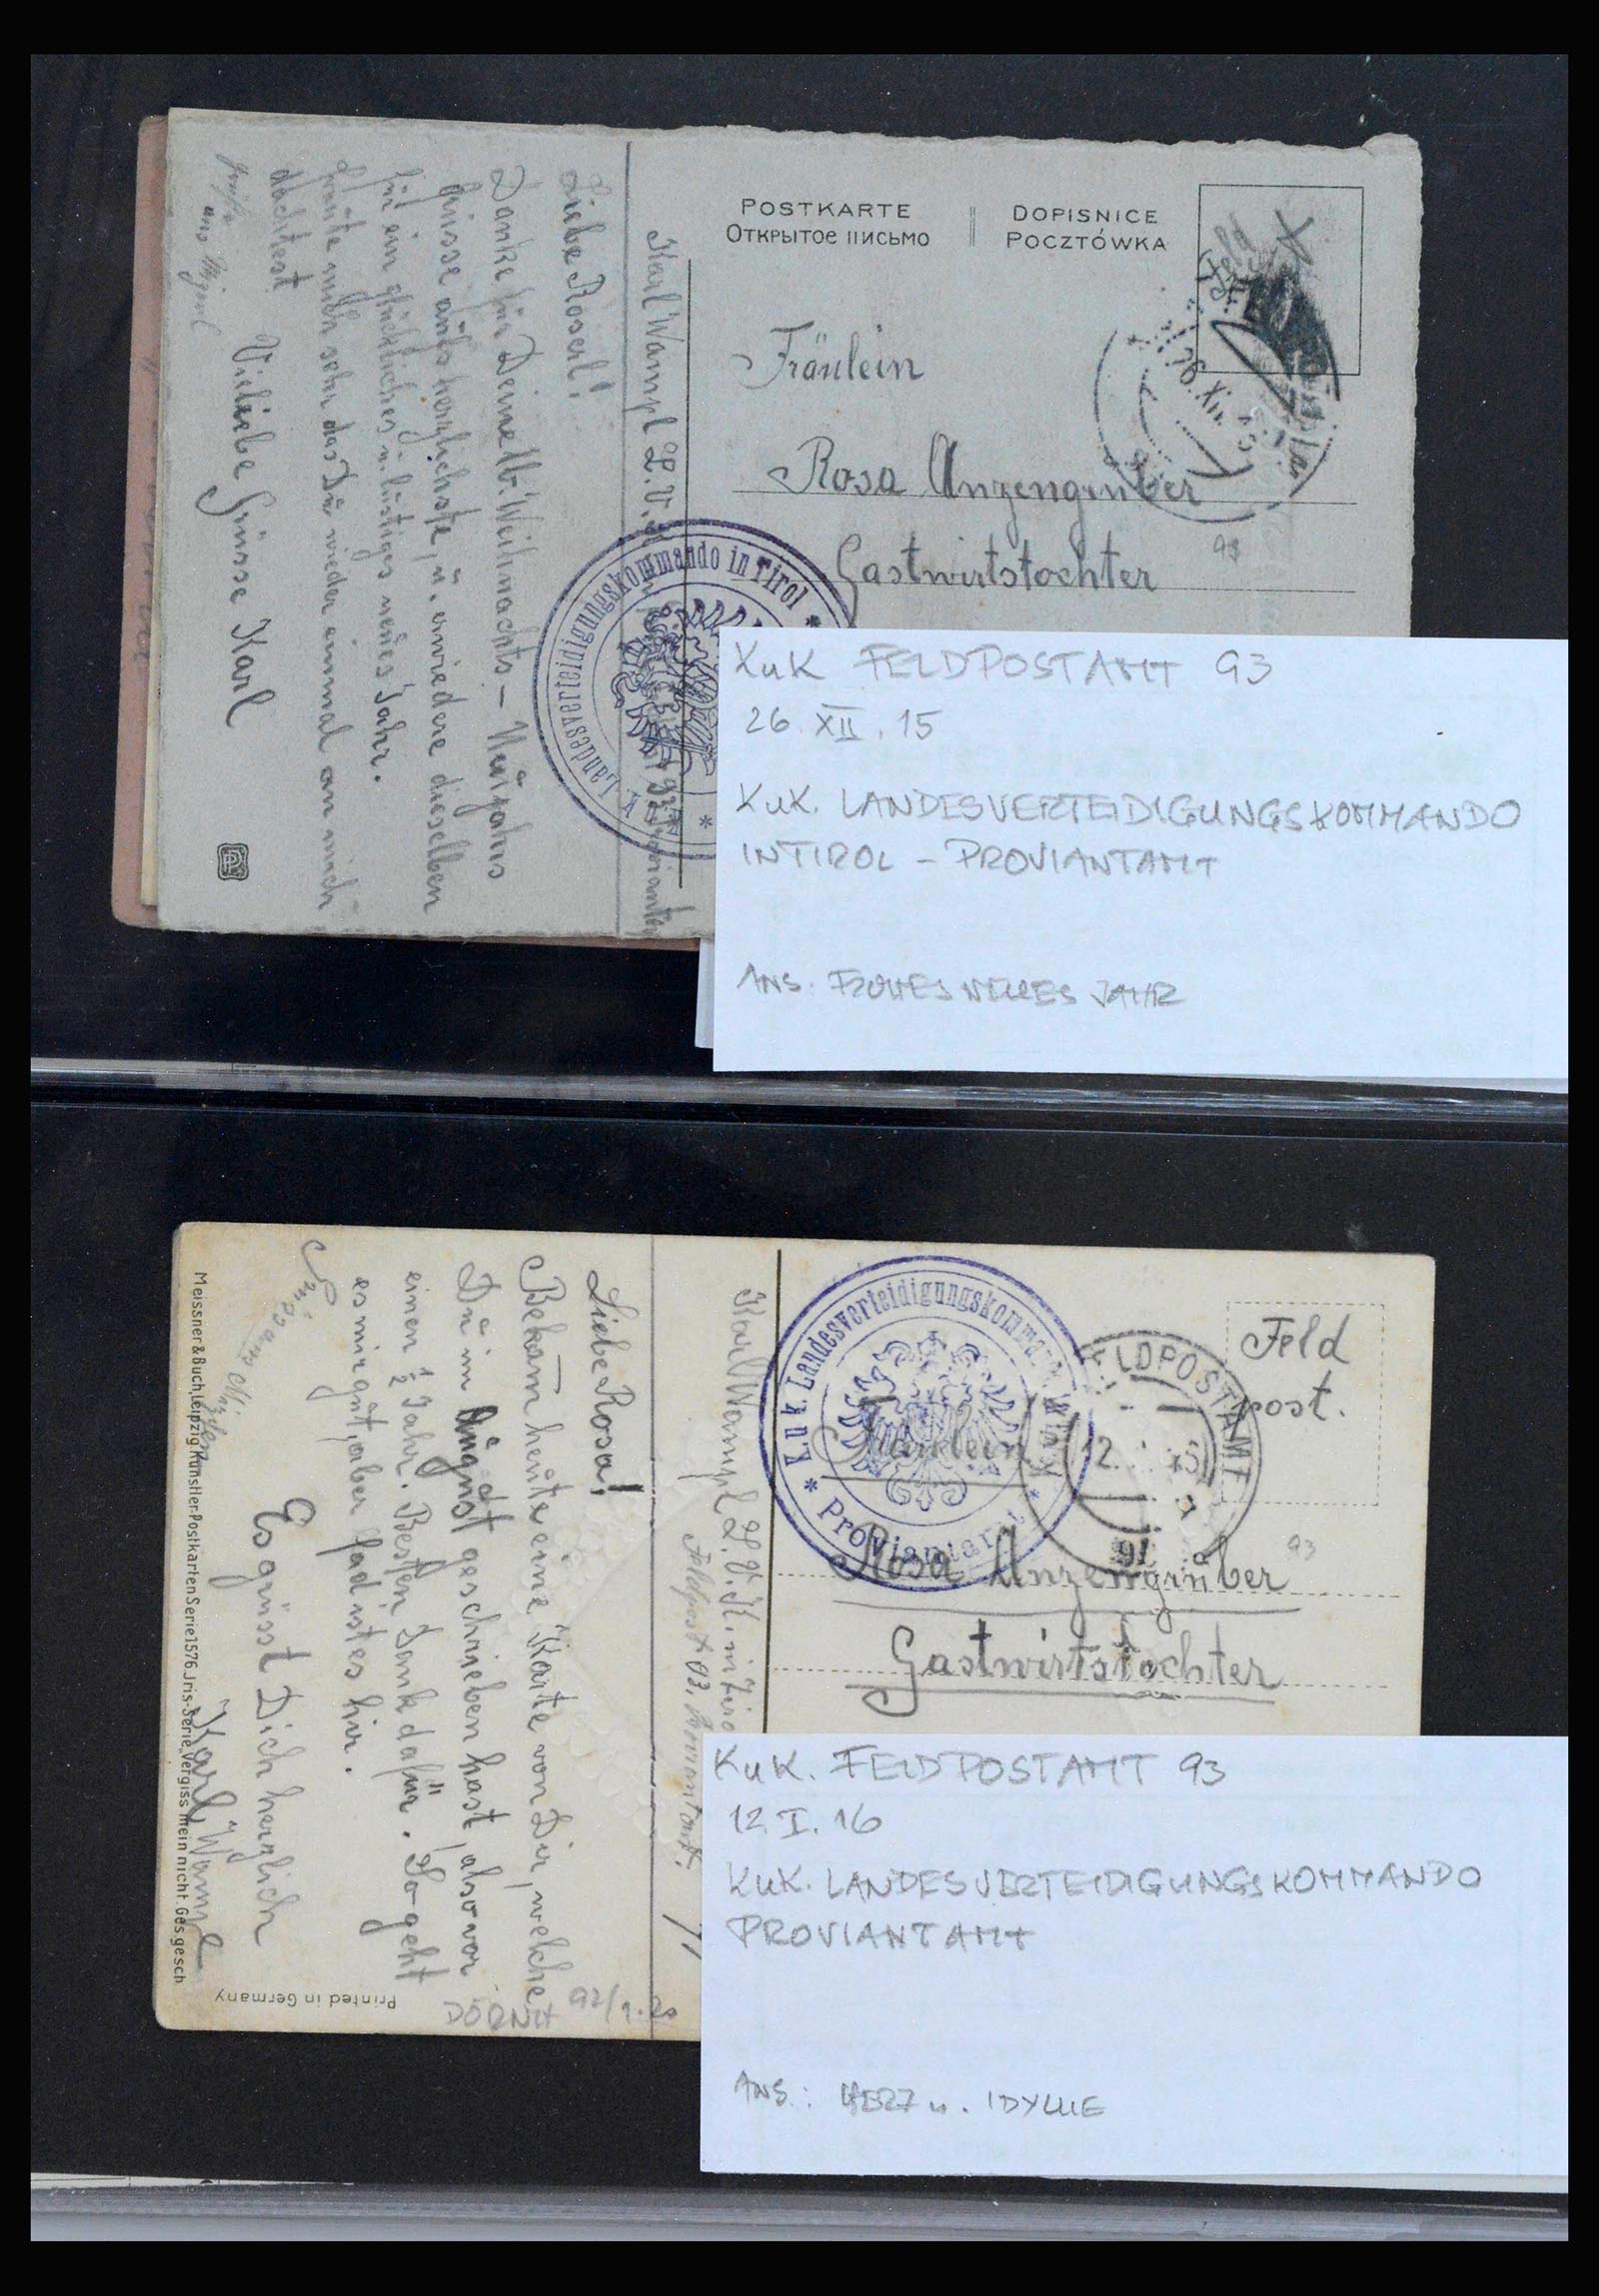 POSTKARTE
ОТКРЫТОЕ ПИСЬМО
DOPISNICE
POCZTÓWKA
Feld
26.XII.15
Fräulein
Rosa Anzengruber
Gastwirtstochter
93
Karl Wampl L.V.
k. Landesverteidigungskommando in Tirol *
Liebe Roserl!
Danke für Deine lb. Weihnachts- Neujahrs
grüsse aufs herzlichste, u. erwiedere dieselben
für ein glückliches u. lustiges neues Jahr.
freute mich sehr das Du wieder einmal an mich
dachtest
Vielliebe Grüsse Karl
KuK FELDPOSTAMT 93
26. XII. 15
KuK. LANDESVERTEIDIGUNGSKOMMANDO
IN TIROL – PROVIANTAMT
ANS: FROHES NEUES JAHR
Feld
post.
FELDPOSTAMT
12.
Fräulein
Rosa Anzengruber
93
Gastwirtstochter
* K u k. Landesverteidigungskommando
Proviantamt *
Karl Wampl L.V.K. in Tiro
Feldpost 93, Proviantamt.
Liebe Rosa!
Bekam heute eine Karte von Dir, welche
Du im August geschrieben hast, also vor
einen ½ Jahr. Besten Dank dafür. So geht
es mir gut, aber fad ist es hir.
Es grüsst Dich herzlich
Karl Wampl
Meissner & Buch, Leipzig Künstler-Postkarten Serie 1576 Iris-Serie, Vergiss mein nicht. Ges. gesch
Printed in Germany
DÖRNH 92/1.20
KuK. FELDPOSTAMT 93
12. I. 16
KuK. LANDESVERTEIDIGUNGSKOMMANDO
PROVIANTAMT
ANS.: HERZ u. IDYLLE